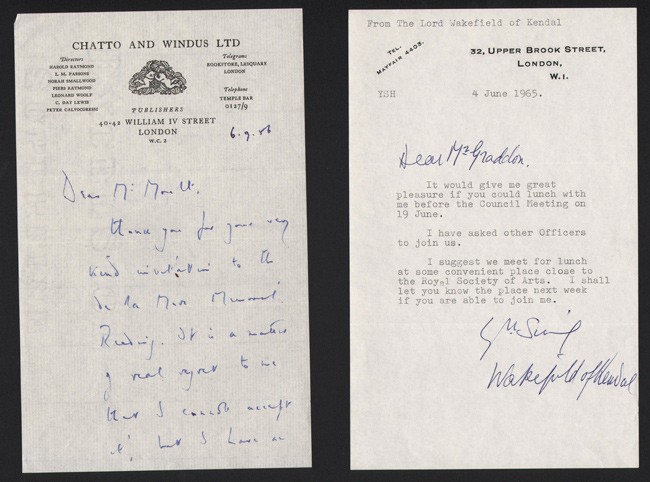 CHATTO AND WINDUS LTD
Directors
HAROLD RAYMOND
I. M. PARSONS
NORAH SMALLWOOD
PIERS RAYMOND
LEONARD WOOLF
C. DAY LEWIS
PETER CALVOCORESSI
Telegrams
BOOKSTORE, LESQUARE
LONDON
Telephone
TEMPLE BAR
0127/9
PUBLISHERS
40-42 WILLIAM IV STREET
LONDON
W.C. 2
6.9.56
Dear Mr
Thank you for your very
kind invitation to the
de la Mare Memorial
Reading. It is a matter
of real regret to me
that I cannot accept
it, but I have an
From The Lord Wakefield of Kendal
TEL.
MAYFAIR 4403.
32, UPPER BROOK STREET,
LONDON,
W.1.
YSH
4 June 1965.
Dear Mr Graddon,
It would give me great
pleasure if you could lunch with
me before the Council Meeting on
19 June.
I have asked other Officers
to join us.
I suggest we meet for lunch
at some convenient place close to
the Royal Society of Arts. I shall
let you know the place next week
if you are able to join me.
Wakefield of Kendal